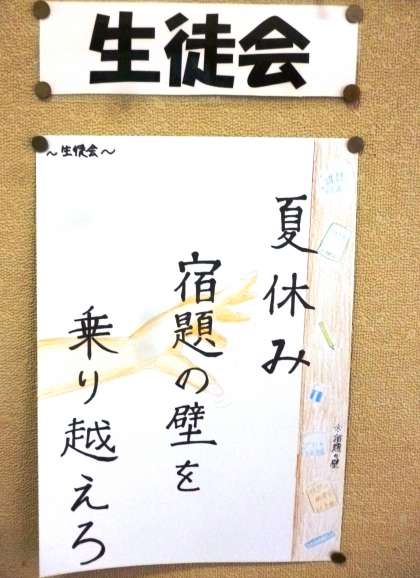 生徒会
～生徒会～
夏休み
宿題の壁を
乗り越えろ
宿題の壁